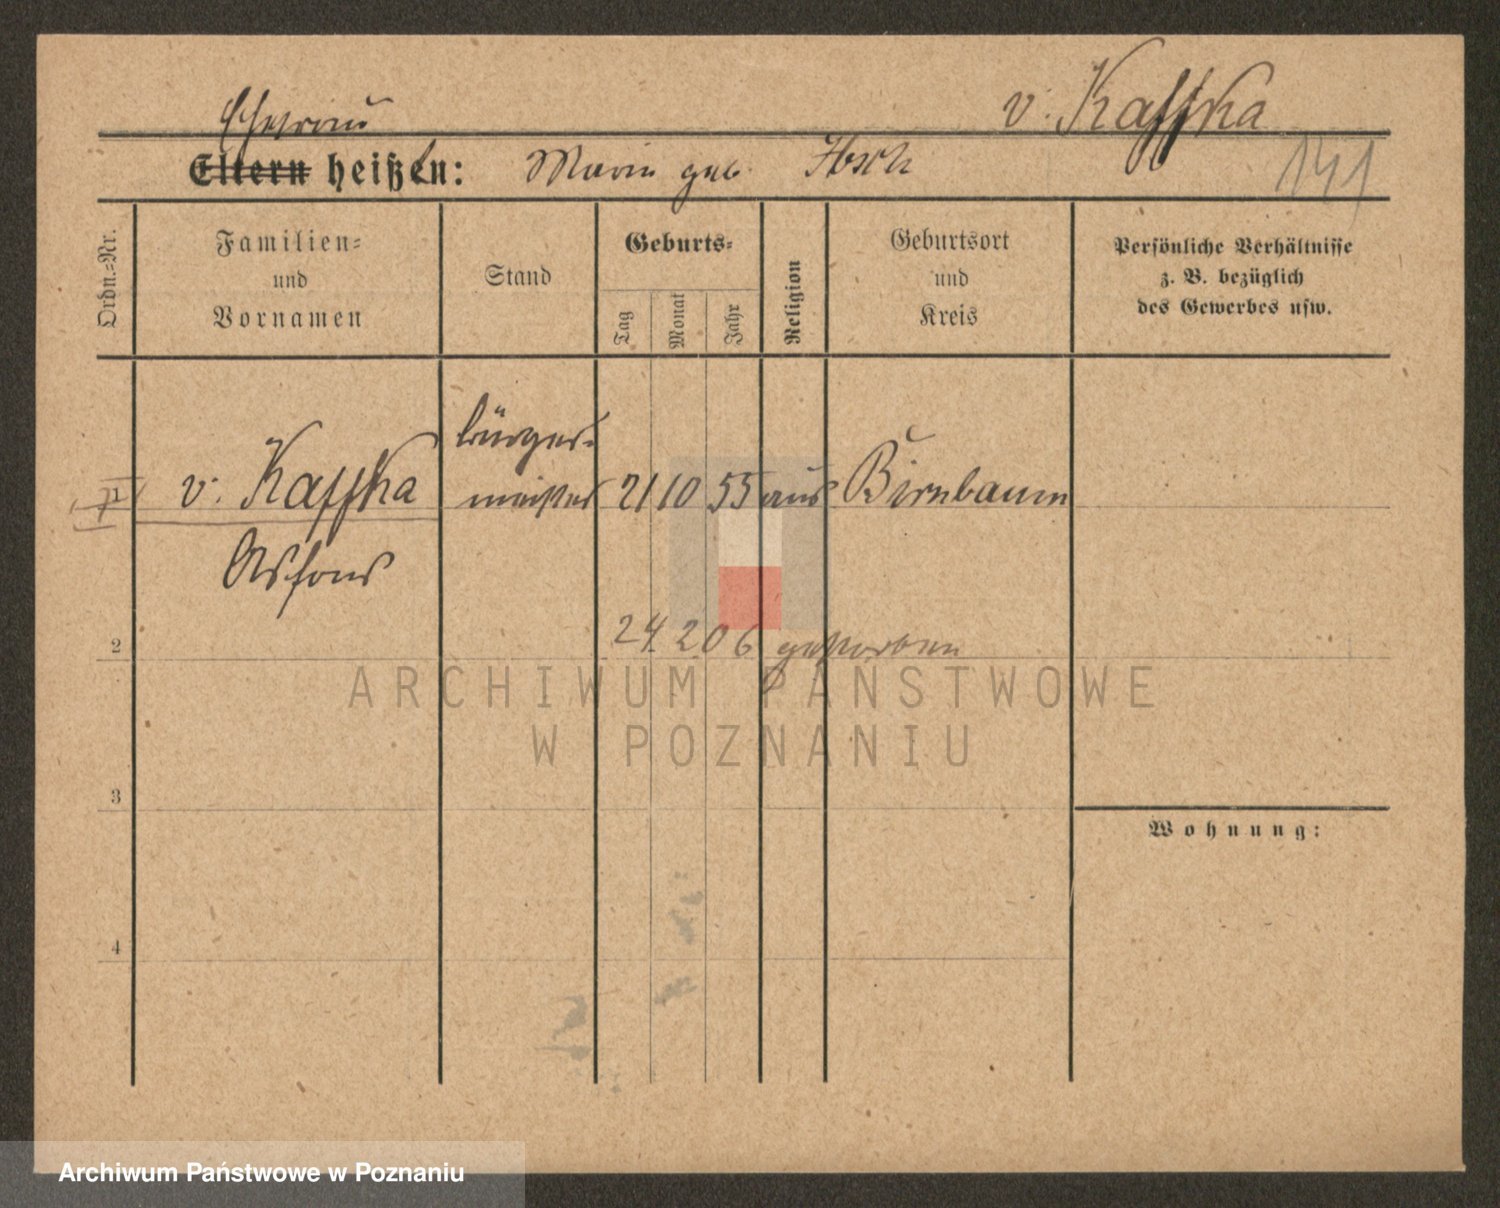 v. Kaffka
Ehefrau
Eltern heißen: Marie geb.
141
Ordn.=Nr.
Familien=
und
Vornamen
Stand
Geburts=
Tag
Monat
Jahr
Religion
Geburtsort
und
Kreis
Persönliche Verhältnisse
z. B. bezüglich
des Gewerbes usw.
bürger=
1 v. Kaffka meister 21 10 55 aus Birnbaum
Alfons
2 24. 2. 06 gestorben
ARCHIWUM PAŃSTWOWE
W POZNANIU
3
Wohnung:
4
Archiwum Państwowe w Poznaniu